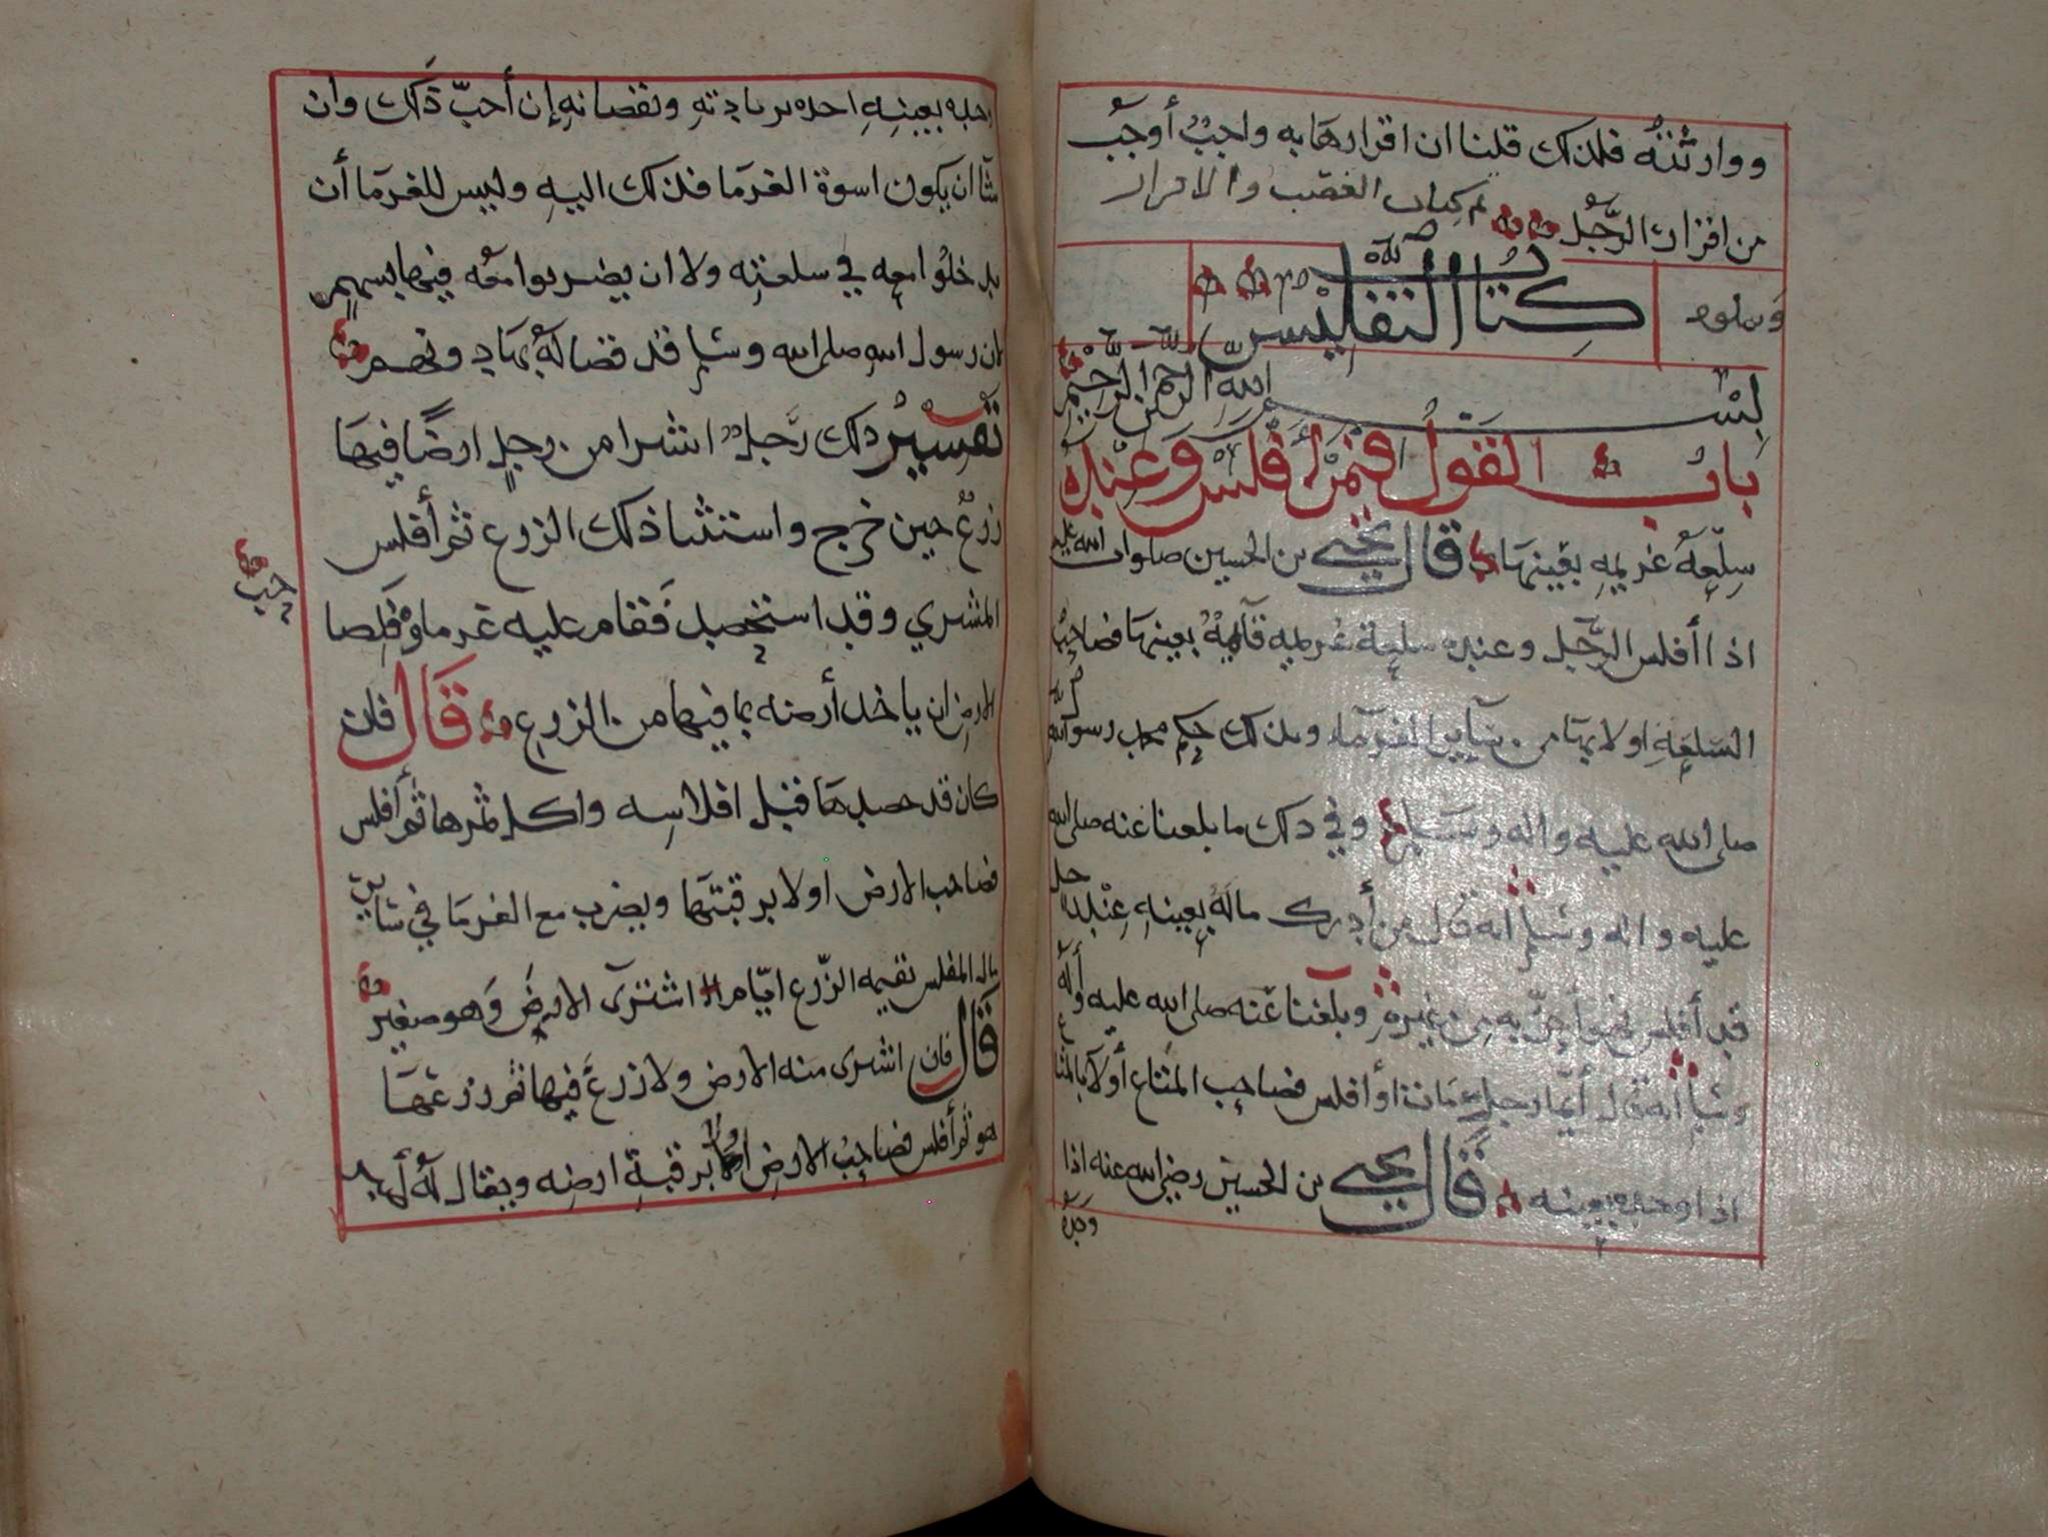 ووارثته فلذلك قلنا ان اقرارها به واجبٌ أوجب
من اقرار الرَّجُل تم كتاب الغصب والاقرار
ويتلوه كتاب التفليس
بسم الله الرحمن الرحيم
باب القول فيمن أفلس وعنده
سلعة غريمه بعينها قال يحيى بن الحسين صلوات الله عليه
اذا أفلس الرجل وعنده سلعة غريمه قآيمة بعينها فصاحب
السلعة اولا بها من سآير الغرمآء وبذلك حكم محمد رسول الله
صلى الله عليه واله وسلم وفي ذلك ما بلغنا عنه صلى الله
عليه واله وسلم انه قال من أدرك ماله بعينه عند رجل
قد أفلس فهو أحق به من غيره وبلغنا عنه صلى الله عليه وآله
وسلم انه قال أيما رجل مات أو أفلس فصاحب المتاع أولا بالمتاع
اذا وجده بعينه قال يحيى بن الحسين رضي الله عنه اذا
وجده
وجده بعينه اخذه بزيادته ونقصانه إن أحبّ ذلك وان
شآ ان يكون اسوة الغرما فذلك اليه وليس للغرما أن
يدخلوا معه في سلعته ولا ان يضربوا معه فيها بسهم
لان رسول الله صلى الله وسلم قد قضا له بها دونهم
تفسير ذلك رجل اشرا من رجل ارضًا فيها
زرع حين خرج واستثنا ذلك الزرع ثم أفلس
المشري وقد استحصد فقام عليه غرماوه فلصا
حب
الارض ان ياخذ أرضه بما فيها من الزرع قال فان
كان قد حصدها قبل افلاسه واكل ثمرها ثم أفلس
فصاحب الارض اولا برقبتها ويضرب مع الغرما في سآير
مال المفلس بقيمه الزّرع ايّام اشترى الارض وهو صغير
قال فان اشرى منه الارض ولا زرعَ فيها ثم زرعها
هو ثم أفلس فصاحب الارض اولا برقبة ارضه ويقال له